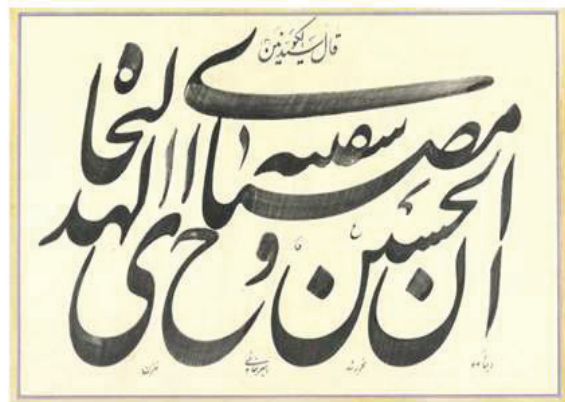 قال سید الکونین
ان الحسین مصباح الهدی و سفینة النجاة